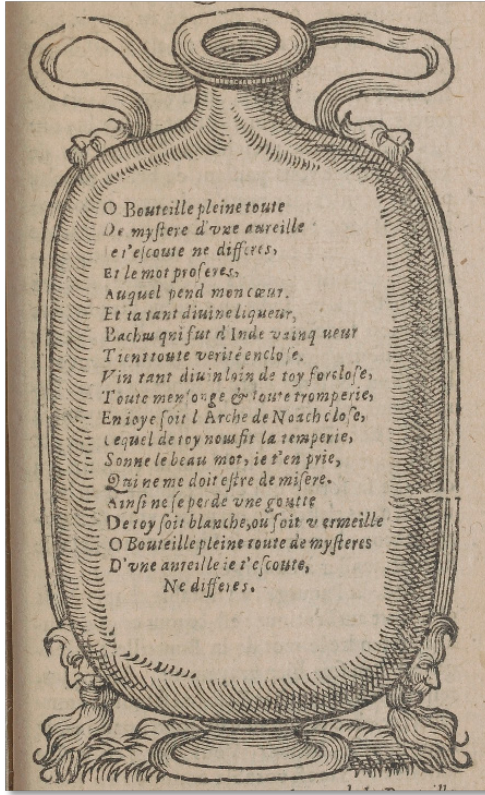 O Bouteille pleine toute
De myſtere d'vne aureille
Ie t'eſcoute ne differes,
Et le mot proferes,
Auquel pend mon cœur.
Et ta tant diuine liqueur,
Bachus qui fut d'Inde vainq ueur
Tient toute verité encloſe.
Vin tant diuin loin de toy forcloſe,
Toute menſonge & toute tromperie,
En ioye ſoit l'Arche de Noach cloſe,
Lequel de toy nous fit la temperie,
Sonne le beau mot, ie t'en prie,
Qui ne me doit eſtre de miſere.
Ainſi ne ſe perde vne goutte
De toy ſoit blanche, ou ſoit v ermeille
O Bouteille pleine toute de myſteres
D'vne aureille ie t'eſcoute,
Ne differes.